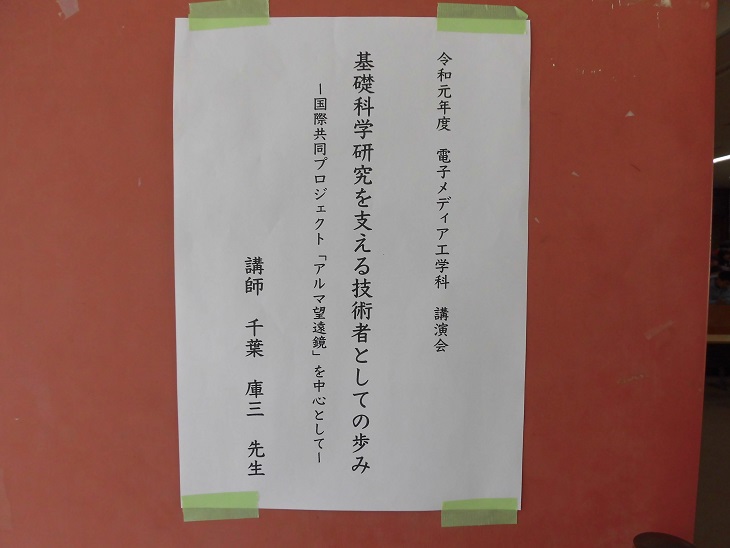 令和元年度　電子メディア工学科　講演会
基礎科学研究を支える技術者としての歩み
ー国際共同プロジェクト「アルマ望遠鏡」を中心としてー
講師　千葉　庫三　先生